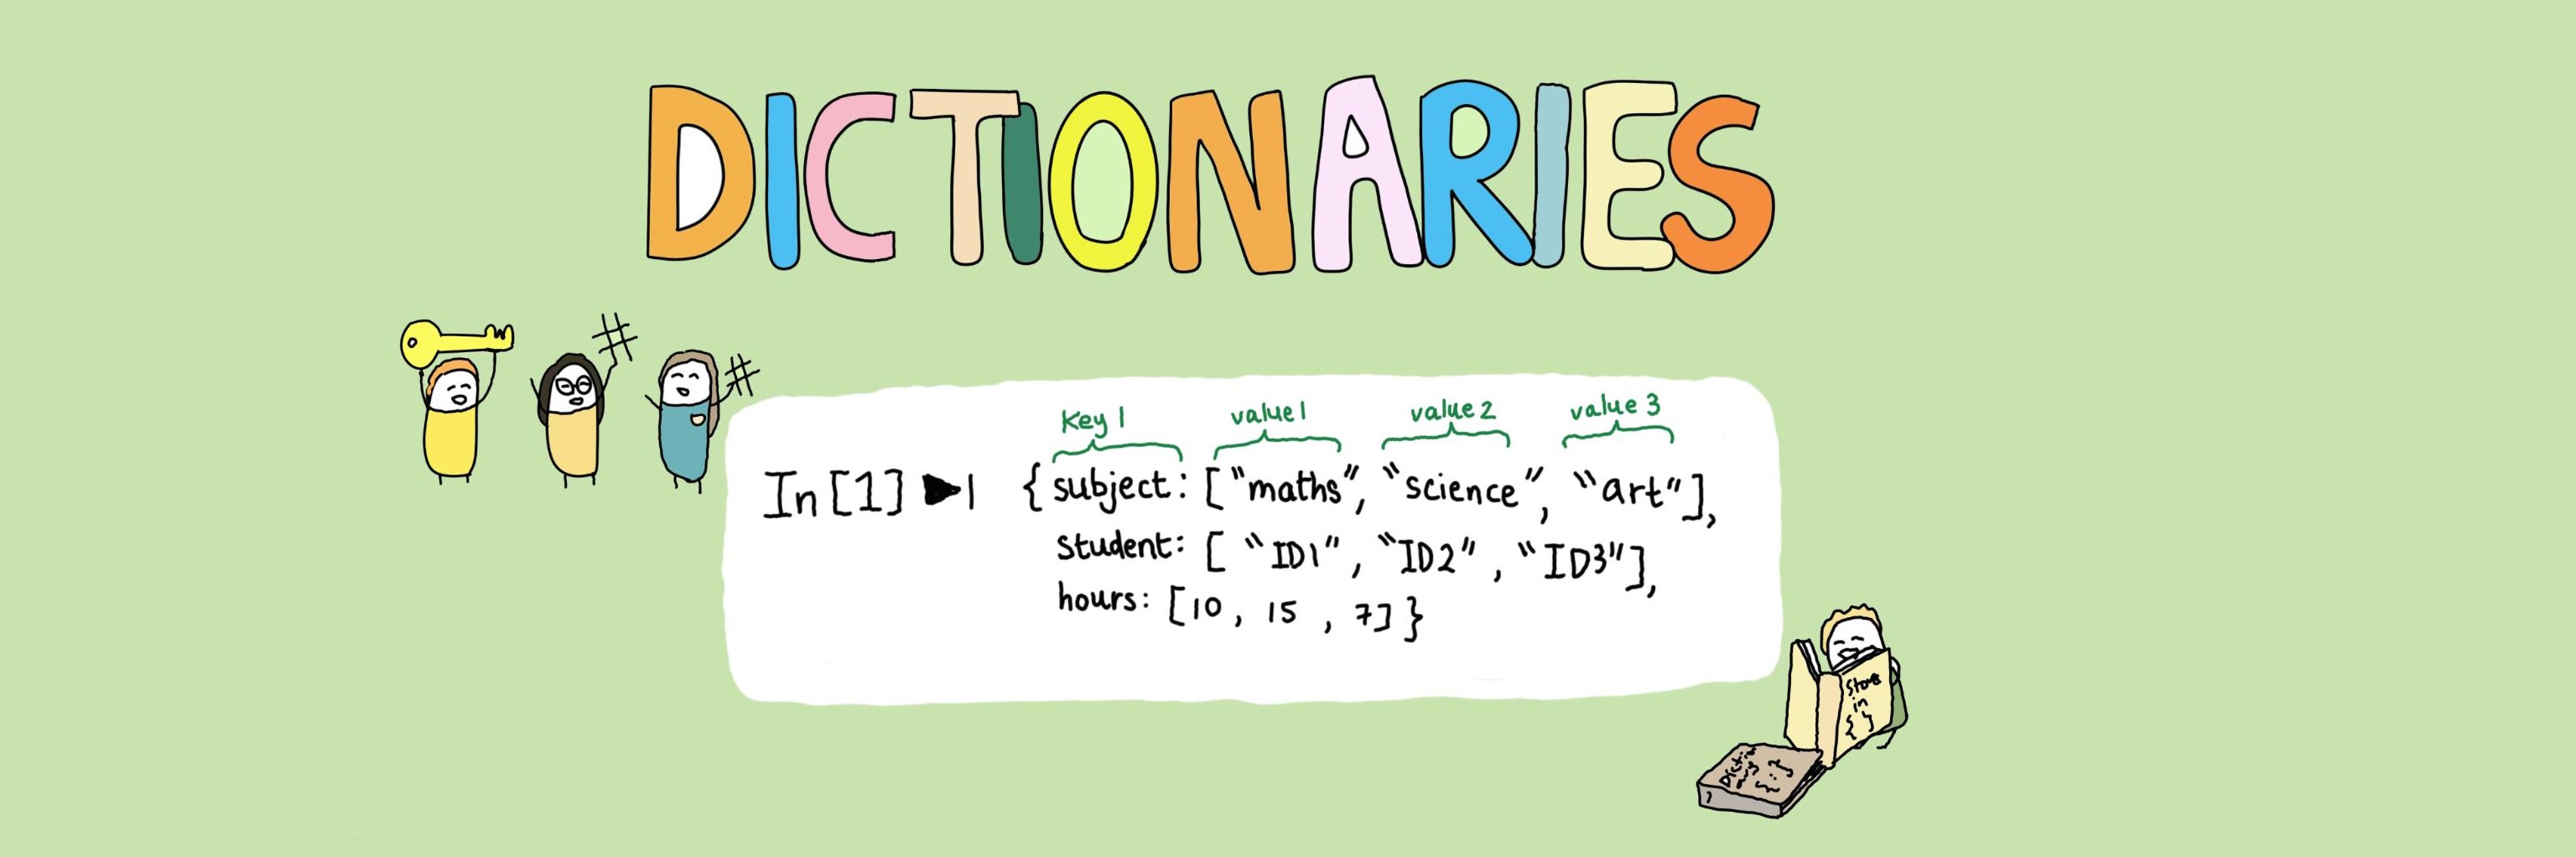 DICTIONARIES
# #
Key 1 value 1 value 2 value 3
In [1] ▶| { subject: ["maths", "science", "art"],
student: [ "ID1", "ID2", "ID3"],
hours: [10, 15, 7] }
store
in
{ }